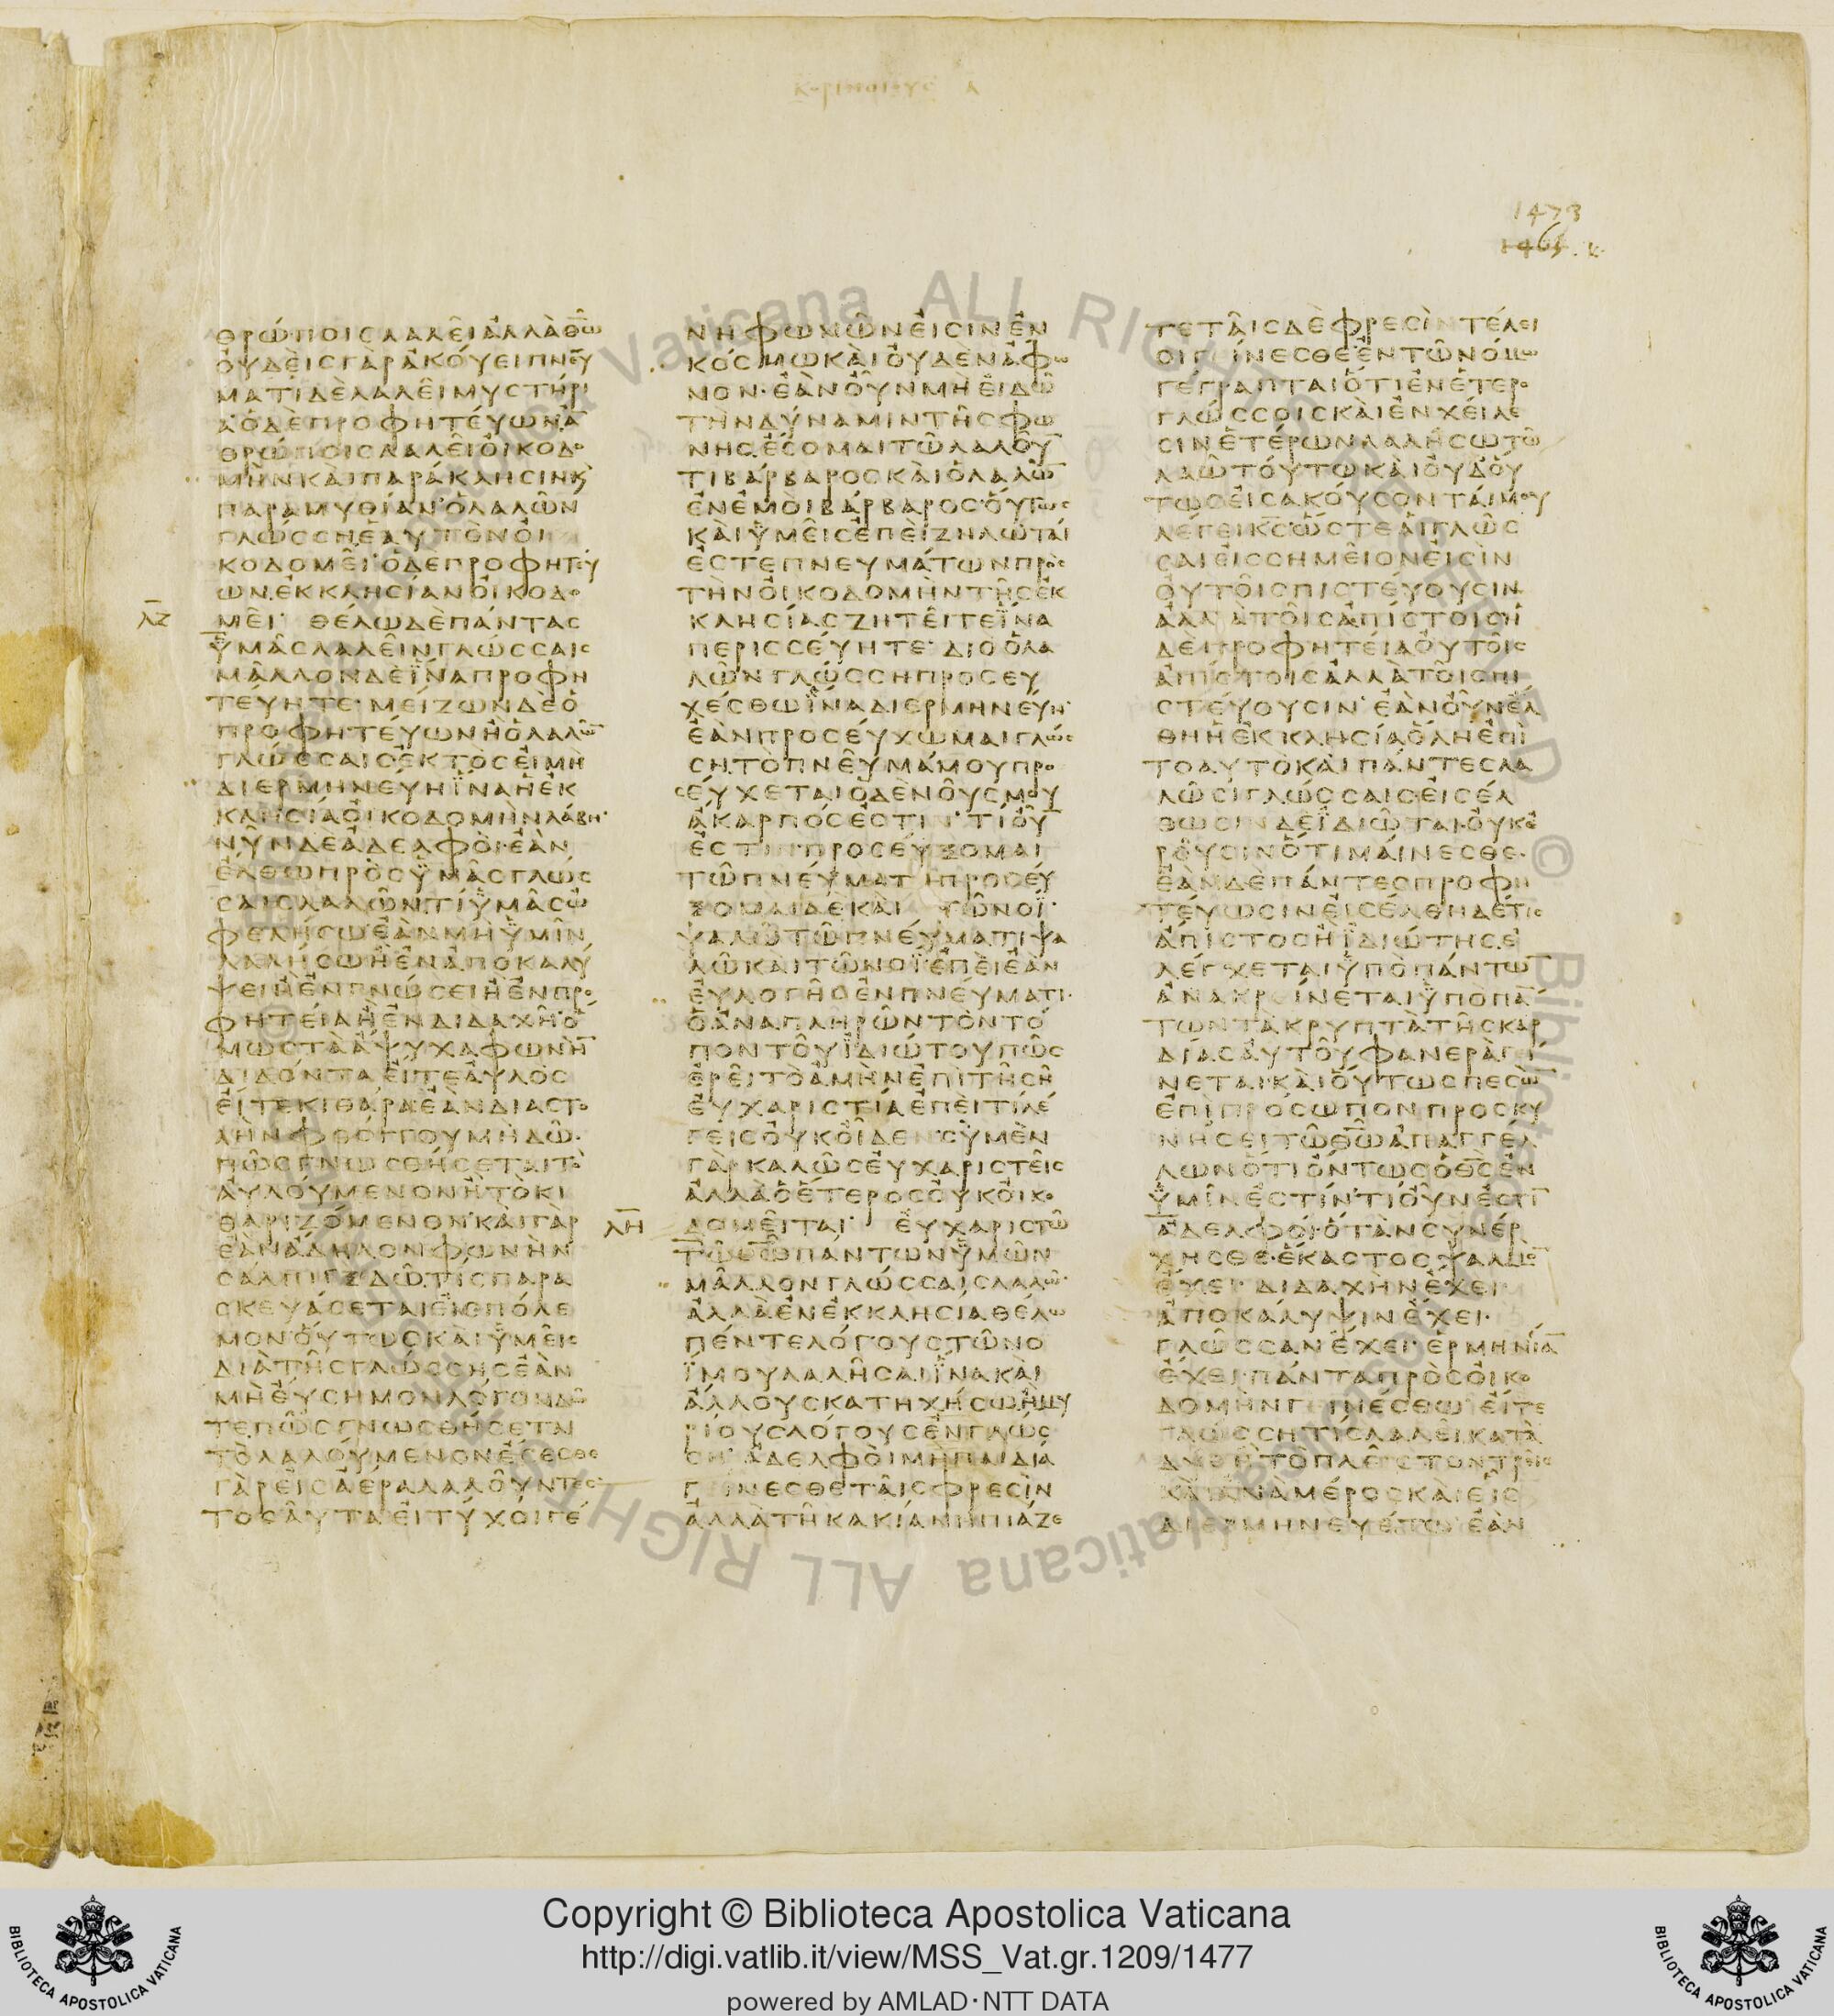 Κορινθιους Α
1473
ΘΡΩΠΟΙΣΛΑΛΕΙΑΛΛΑΘΩ
ΟΥΔΕΙΣΓΑΡΑΚΟΥΕΙΠΝΕΥ
ΜΑΤΙΔΕΛΑΛΕΙΜΥΣΤΗΡΙ
ΑΟΔΕΠΡΟΦΗΤΕΥΩΝΑ̅
ΘΡΩΠΟΙΣΛΑΛΕΙΟΙΚΟΔΟ
ΜΗΝΚΑΙΠΑΡΑΚΛΗΣΙΝΚ
ΠΑΡΑΜΥΘΙΑΝΟΛΑΛΩΝ
ΓΛΩΣΣΗΕΑΥΤΟΝΟΙ
ΚΟΔΟΜΕΙΟΔΕΠΡΟΦΗΤΕΥ
ΩΝΕΚΚΛΗΣΙΑΝΟΙΚΟΔΟ
ΛΖ ΜΕΙ· ΘΕΛΩΔΕΠΑΝΤΑΣ
ΫΜΑΣΛΑΛΕΙΝΓΛΩΣΣΑΙΣ
ΜΑΛΛΟΝΔΕΪΝΑΠΡΟΦΗ
ΤΕΥΗΤΕ·ΜΕΙΖΩΝΔΕΟ
ΠΡΟΦΗΤΕΥΩΝΗΟΛΑΛΩ̅
ΓΛΩΣΣΑΙΣΕΚΤΟΣΕΙΜΗ
ΔΙΕΡΜΗΝΕΥΗΪΝΑΗΕΚ
ΚΛΗΣΙΑΟΙΚΟΔΟΜΗΝΛΑΒΗ·
ΝΥΝΔΕΑΔΕΛΦΟΙ·ΕΑΝ
ΕΛΘΩΠΡΟΣΫΜΑΣΓΛΩΣ
ΣΑΙΣΛΑΛΩΝΤΙΫΜΑΣΩ
ΦΕΛΗΣΩΕΑΝΜΗΫΜΙΝ
ΛΑΛΗΣΩΗΕΝΑΠΟΚΑΛΥ
ΨΕΙΗΕΝΓΝΩΣΕΙΗΕΝΠΡΟ
ΦΗΤΕΙΑΗΕΝΔΙΔΑΧΗ·Ο
ΜΩΣΤΑΑΨΥΧΑΦΩΝΗ̅
ΔΙΔΟΝΤΑΕΙΤΕΑΥΛΟΣ
ΕΙΤΕΚΙΘΑΡΑΕΑΝΔΙΑΣΤΟ
ΛΗΝΦΘΟΓΓΟΥΜΗΔΩ·
ΠΩΣΓΝΩΣΘΗΣΕΤΑΙΤΟ
ΑΥΛΟΥΜΕΝΟΝΗΤΟΚΙ
ΘΑΡΙΖΟΜΕΝΟΝ·ΚΑΙΓΑΡ
ΕΑΝΑΔΗΛΟΝΦΩΝΗΝ
ΣΑΛΠΙΓΞΔΩΤΙΣΠΑΡΑ
ΣΚΕΥΑΣΕΤΑΙΕΙΣΠΟΛΕ
ΜΟΝΟΥΤΩΣΚΑΙΫΜΕΙΣ
ΔΙΑΤΗΣΓΛΩΣΣΗΣΕΑΝ
ΜΗΕΥΣΗΜΟΝΛΟΓΟΝΔΩ
ΤΕΠΩΣΓΝΩΣΘΗΣΕΤΑΙ
ΤΟΛΑΛΟΥΜΕΝΟΝΕΣΕΣΘΕ
ΓΑΡΕΙΣΑΕΡΑΛΑΛΟΥΝΤΕΣ
ΤΟΣΑΥΤΑΕΙΤΥΧΟΙΓΕ
ΝΗΦΩΝΩΝΕΙΣΙΝΕΝ
ΚΟΣΜΩΚΑΙΟΥΔΕΝΑΦΩ
ΝΟΝ·ΕΑΝΟΥΝΜΗΕΙΔΩ
ΤΗΝΔΥΝΑΜΙΝΤΗΣΦΩ
ΝΗΣΕΣΟΜΑΙΤΩΛΑΛΟΥ̅
ΤΙΒΑΡΒΑΡΟΣΚΑΙΟΛΑΛΩ̅
ΕΝΕΜΟΙΒΑΡΒΑΡΟΣ·ΟΥΤΩΣ
ΚΑΙΫΜΕΙΣΕΠΕΙΖΗΛΩΤΑΙ
ΕΣΤΕΠΝΕΥΜΑΤΩΝΠΡΟΣ
ΤΗΝΟΙΚΟΔΟΜΗΝΤΗΣΕΚ
ΚΛΗΣΙΑΣΖΗΤΕΙΤΕΪΝΑ
ΠΕΡΙΣΣΕΥΗΤΕ·ΔΙΟΟΛΑ
ΛΩΝΓΛΩΣΣΗΠΡΟΣΕΥ
ΧΕΣΘΩΪΝΑΔΙΕΡΜΗΝΕΥΗ·
ΕΑΝΠΡΟΣΕΥΧΩΜΑΙΓΛΩΣ
ΣΗΤΟΠΝΕΥΜΑΜΟΥΠΡΟ
ΣΕΥΧΕΤΑΙΟΔΕΝΟΥΣΜΟΥ
ΑΚΑΡΠΟΣΕΣΤΙΝ·ΤΙΟΥ̅
ΕΣΤΙΝΠΡΟΣΕΥΞΟΜΑΙ
ΤΩΠΝΕΥΜΑΤΙΠΡΟΣΕΥ
ΞΟΜΑΙΔΕΚΑΙΤΩΝΟΪ·
ΨΑΛΩΤΩΠΝΕΥΜΑΤΙΨΑ
ΛΩΚΑΙΤΩΝΟΪΕΠΕΙΕΑΝ
ΕΥΛΟΓΗΣΕΝΠΝΕΥΜΑΤΙ·
ΟΑΝΑΠΛΗΡΩΝΤΟΝΤΟ
ΠΟΝΤΟΥΪΔΙΩΤΟΥΠΩΣ
ΕΡΕΙΤΟΑΜΗΝΕΠΙΤΗΣΗ
ΕΥΧΑΡΙΣΤΙΑΕΠΕΙΤΙΛΕ
ΓΕΙΣΟΥΚΟΙΔΕΝ·ΣΥΜΕΝ
ΓΑΡΚΑΛΩΣΕΥΧΑΡΙΣΤΕΙΣ
ΑΛΛΑΟΕΤΕΡΟΣΟΥΚΟΙΚΟ
ΛΗ ΔΟΜΕΙΤΑΙ· ΕΥΧΑΡΙΣΤΩ
ΤΩΘΩΠΑΝΤΩΝΫΜΩΝ
ΜΑΛΛΟΝΓΛΩΣΣΑΙΣΛΑΛΩ·
ΑΛΛΑΕΝΕΚΚΛΗΣΙΑΘΕΛΩ
ΠΕΝΤΕΛΟΓΟΥΣΤΩΝΟ
ΪΜΟΥΛΑΛΗΣΑΙΪΝΑΚΑΙ
ΑΛΛΟΥΣΚΑΤΗΧΗΣΩΗΜΥ
ΡΙΟΥΣΛΟΓΟΥΣΕΝΓΛΩΣ
ΣΗ·ΑΔΕΛΦΟΙΜΗΠΑΙΔΙΑ
ΓΕΙΝΕΣΘΕΤΑΙΣΦΡΕΣΙΝ
ΑΛΛΑΤΗΚΑΚΙΑΝΗΠΙΑΖΕ
ΤΕΤΑΙΣΔΕΦΡΕΣΙΝΤΕΛΕΙ
ΟΙΓΕΙΝΕΣΘΕ·ΕΝΤΩΝΟΜΩ
ΓΕΓΡΑΠΤΑΙΟΤΙΕΝΕΤΕΡΟ
ΓΛΩΣΣΟΙΣΚΑΙΕΝΧΕΙΛΕ
ΣΙΝΕΤΕΡΩΝΛΑΛΗΣΩΤΩ
ΛΑΩΤΟΥΤΩΚΑΙΟΥΔΟΥ
ΤΩΣΕΙΣΑΚΟΥΣΟΝΤΑΙΜΟΥ
ΛΕΓΕΙΚΣΩΣΤΕΑΙΓΛΩΣ
ΣΑΙΕΙΣΣΗΜΕΙΟΝΕΙΣΙΝ
ΟΥΤΟΙΣΠΙΣΤΕΥΟΥΣΙΝ
ΑΛΛΑΤΟΙΣΑΠΙΣΤΟΙΣΗ
ΔΕΠΡΟΦΗΤΕΙΑΟΥΤΟΙΣ
ΑΠΙΣΤΟΙΣΑΛΛΑΤΟΙΣΠΙ
ΣΤΕΥΟΥΣΙΝ·ΕΑΝΟΥΝΕΛ
ΘΗΗΕΚΚΛΗΣΙΑΟΛΗΕΠΙ
ΤΟΑΥΤΟΚΑΙΠΑΝΤΕΣΛΑ
ΛΩΣΙΓΛΩΣΣΑΙΣΕΙΣΕΛ
ΘΩΣΙΝΔΕΪΔΙΩΤΑΙ·ΟΥΚΕ
ΡΟΥΣΙΝΟΤΙΜΑΙΝΕΣΘΕ·
ΕΑΝΔΕΠΑΝΤΕΣΠΡΟΦΗ
ΤΕΥΩΣΙΝΕΙΣΕΛΘΗΔΕΤΙΣ
ΑΠΙΣΤΟΣΗΪΔΙΩΤΗΣΕ
ΛΕΓΧΕΤΑΙΫΠΟΠΑΝΤΩ̅
ΑΝΑΚΡΕΙΝΕΤΑΙΫΠΟΠΑ̅
ΤΩΝΤΑΚΡΥΠΤΑΤΗΣΚΑΡ
ΔΙΑΣΑΥΤΟΥΦΑΝΕΡΑΓΕΙ
ΝΕΤΑΙ·ΚΑΙΟΥΤΩΣΠΕΣΩ̅
ΕΠΙΠΡΟΣΩΠΟΝΠΡΟΣΚΥ
ΝΗΣΕΙΤΩΘΩΑΠΑΓΓΕΛ
ΛΩΝΟΤΙΟΝΤΩΣΟΘΣΕΝ
ΫΜΙΝΕΣΤΙΝ·ΤΙΟΥΝΕΣΤΙ̅
ΑΔΕΛΦΟΙ·ΟΤΑΝΣΥΝΕΡ
ΧΗΣΘΕ·ΕΚΑΣΤΟΣΨΑΛΜΟ̅
ΕΧΕΙ·ΔΙΔΑΧΗΝΕΧΕΙ
ΑΠΟΚΑΛΥΨΙΝΕΧΕΙ·
ΓΛΩΣΣΑΝΕΧΕΙ·ΕΡΜΗΝΙΑ̅
ΕΧΕΙ·ΠΑΝΤΑΠΡΟΣΟΙΚΟ
ΔΟΜΗΝΓΕΙΝΕΣΘΩ·ΕΙΤΕ
ΓΛΩΣΣΗΤΙΣΛΑΛΕΙ·ΚΑΤΑ
ΔΥΟΗΤΟΠΛΕΙΣΤΟΝΤΡΕΙΣ
ΚΑΙΑΝΑΜΕΡΟΣΚΑΙΕΙΣ
ΔΙΕΡΜΗΝΕΥΕΤΩ·ΕΑΝ
Copyright © Biblioteca Apostolica Vaticana
http://digi.vatlib.it/view/MSS_Vat.gr.1209/1477
powered by AMLAD·NTT DATA
BIBLIOTECA APOSTOLICA VATICANA
BIBLIOTECA APOSTOLICA VATICANA